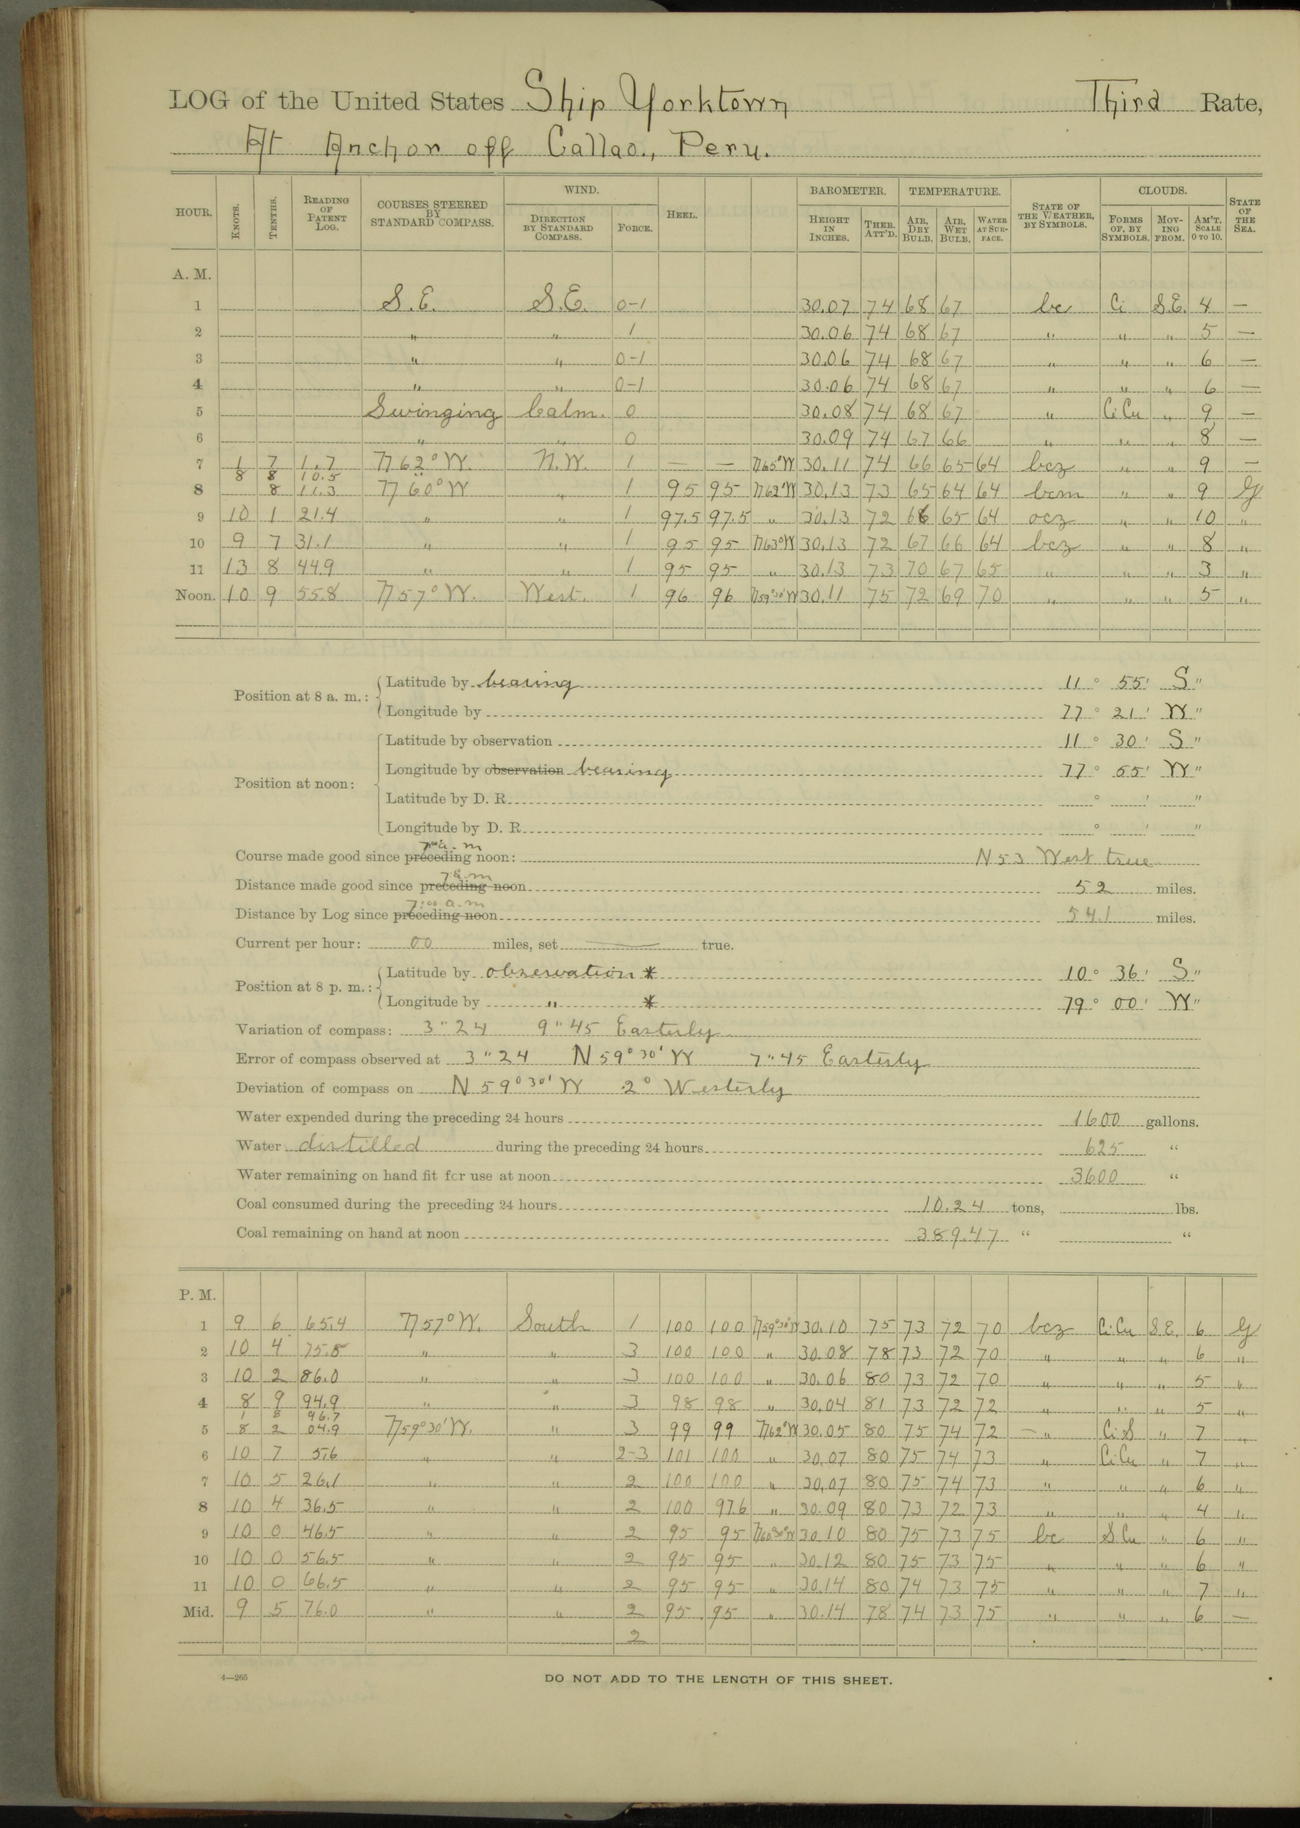 LOG of the United States Ship Yorktown Third Rate,
At Anchor off Callao., Peru.
HOUR. KNOTS. TENTHS. READING OF PATENT LOG. COURSES STEERED BY STANDARD COMPASS. WIND. DIRECTION BY STANDARD COMPASS. FORCE. HEEL. BAROMETER. HEIGHT IN INCHES. THER. ATT'D. TEMPERATURE. AIR, DRY BULB. AIR, WET BULB. WATER AT SURFACE. STATE OF THE WEATHER, BY SYMBOLS. CLOUDS. FORMS OF, BY SYMBOLS. MOVING FROM. AM'T. SCALE 0 TO 10. STATE OF THE SEA.
A. M.
1 S.E. S.E. 0-1 30.07 74 68 67 bc Ci S.E. 4 —
2 " " 1 30.06 74 68 67 " " " 5 —
3 " " 0-1 30.06 74 68 67 " " " 6 —
4 " " 0-1 30.06 74 68 67 " " " 6 —
5 Swinging Calm. 0 30.08 74 68 67 " Ci Cu " 9 —
6 " " 0 30.09 74 67 66 " " " 8 —
7 1 7 1.7 N 62° W. N.W. 1 — — N65°W 30.11 74 66 65 64 bcz " " 9 —
8 8 10.5 "
8 8 11.3 N 60° W " 1 95 95 N62°W 30.13 73 65 64 64 bcm " " 9 G
9 10 1 21.4 " " 1 97.5 97.5 " 30.13 72 66 65 64 ocz " " 10 "
10 9 7 31.1 " " 1 95 95 N63°W 30.13 72 67 66 64 bcz " " 8 "
11 13 8 44.9 " " 1 95 95 " 30.13 73 70 67 65 " " " 3 "
Noon. 10 9 55.8 N 57° W. West. 1 96 96 N59°30'W 30.11 75 72 69 70 " " " 5 "
Position at 8 a. m.: Latitude by bearing 11° 55' S "
Longitude by 77° 21' W "
Position at noon: Latitude by observation 11° 30' S "
Longitude by observation bearing 77° 55' W "
Latitude by D. R. ° ' "
Longitude by D. R. ° ' "
7 a. m
Course made good since preceding noon: N 53 West true
7 a.m
Distance made good since preceding noon 52 miles.
7:00 a.m
Distance by Log since preceding noon 54.1 miles.
Current per hour: 00 miles, set — true.
Position at 8 p. m.: Latitude by observation * 10° 36' S "
Longitude by " * 79° 00' W "
Variation of compass: 3"24 9"45 Easterly
Error of compass observed at 3"24 N 59° 30' W 7"45 Easterly
Deviation of compass on N 59° 30' W 2° Westerly
Water expended during the preceding 24 hours 1600 gallons.
Water distilled during the preceding 24 hours 625 "
Water remaining on hand fit for use at noon 3600 "
Coal consumed during the preceding 24 hours 10.24 tons, lbs.
Coal remaining on hand at noon 389.47 " "
P. M.
1 9 6 65.4 N 57° W. South 1 100 100 N59°30'W 30.10 75 73 72 70 bcz Ci Cu S.E. 6 G
2 10 4 75.8 " " 3 100 100 " 30.08 78 73 72 70 " " " 6 "
3 10 2 86.0 " " 3 100 100 " 30.06 80 73 72 70 " " " 5 "
4 8 9 94.9 " " 3 98 98 " 30.04 81 73 72 72 " " " 5 "
1 8 96.7
5 8 2 04.9 N59°30'W. " 3 99 99 N62°W 30.05 80 75 74 72 " Ci S " 7 "
6 10 7 5.6 " " 2-3 101 100 " 30.07 80 75 74 73 " Ci Cu " 7 "
7 10 5 26.1 " " 2 100 100 " 30.07 80 75 74 73 " " " 6 "
8 10 4 36.5 " " 2 100 97.6 " 30.09 80 73 72 73 " " " 4 "
9 10 0 46.5 " " 2 95 95 N60°30'W 30.10 80 75 73 75 bc S Cu " 6 "
10 10 0 56.5 " " 2 95 95 " 30.12 80 75 73 75 " " " 6 "
11 10 0 66.5 " " 2 95 95 " 30.14 80 74 73 75 " " " 7 "
Mid. 9 5 76.0 " " 2 95 95 " 30.14 78 74 73 75 " " " 6 —
2
4—265 DO NOT ADD TO THE LENGTH OF THIS SHEET.